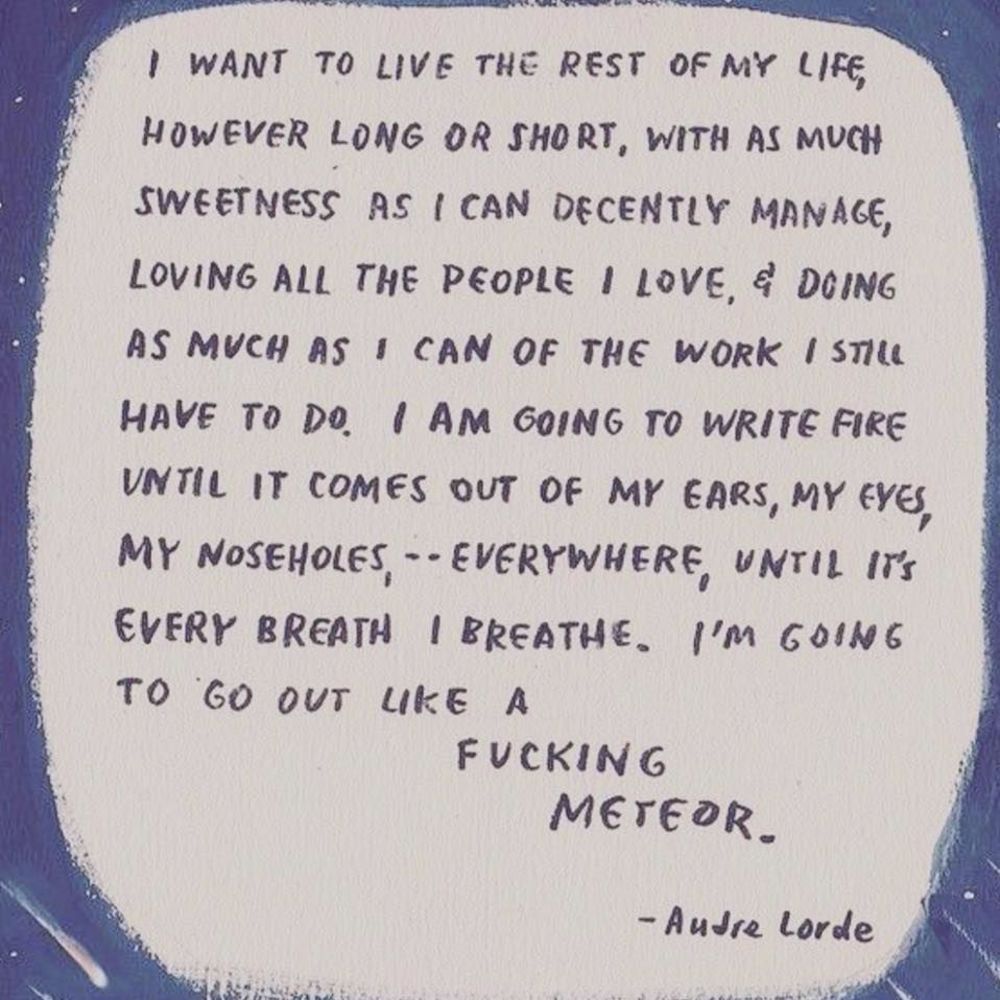 I WANT TO LIVE THE REST OF MY LIFE,
HOWEVER LONG OR SHORT, WITH AS MUCH
SWEETNESS AS I CAN DECENTLY MANAGE,
LOVING ALL THE PEOPLE I LOVE, & DOING
AS MUCH AS I CAN OF THE WORK I STILL
HAVE TO DO. I AM GOING TO WRITE FIRE
UNTIL IT COMES OUT OF MY EARS, MY EYES,
MY NOSEHOLES, -- EVERYWHERE, UNTIL IT'S
EVERY BREATH I BREATHE. I'M GOING
TO GO OUT LIKE A
FUCKING
METEOR.
- Audre Lorde